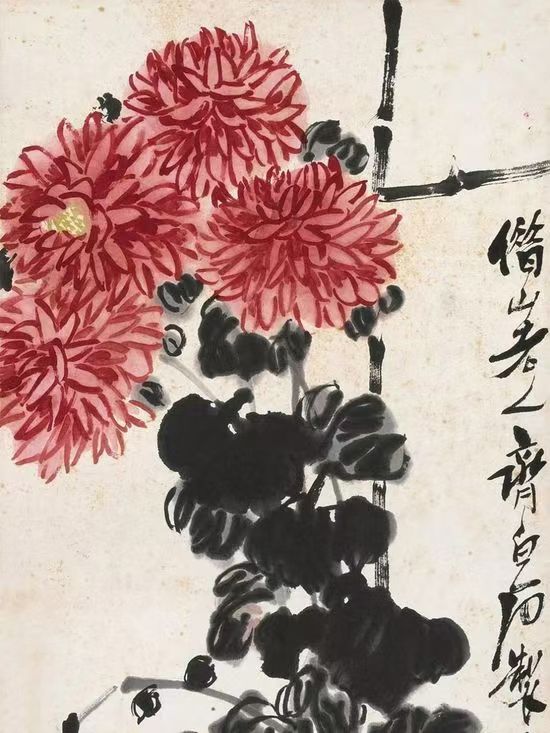 借山老人齊白石製